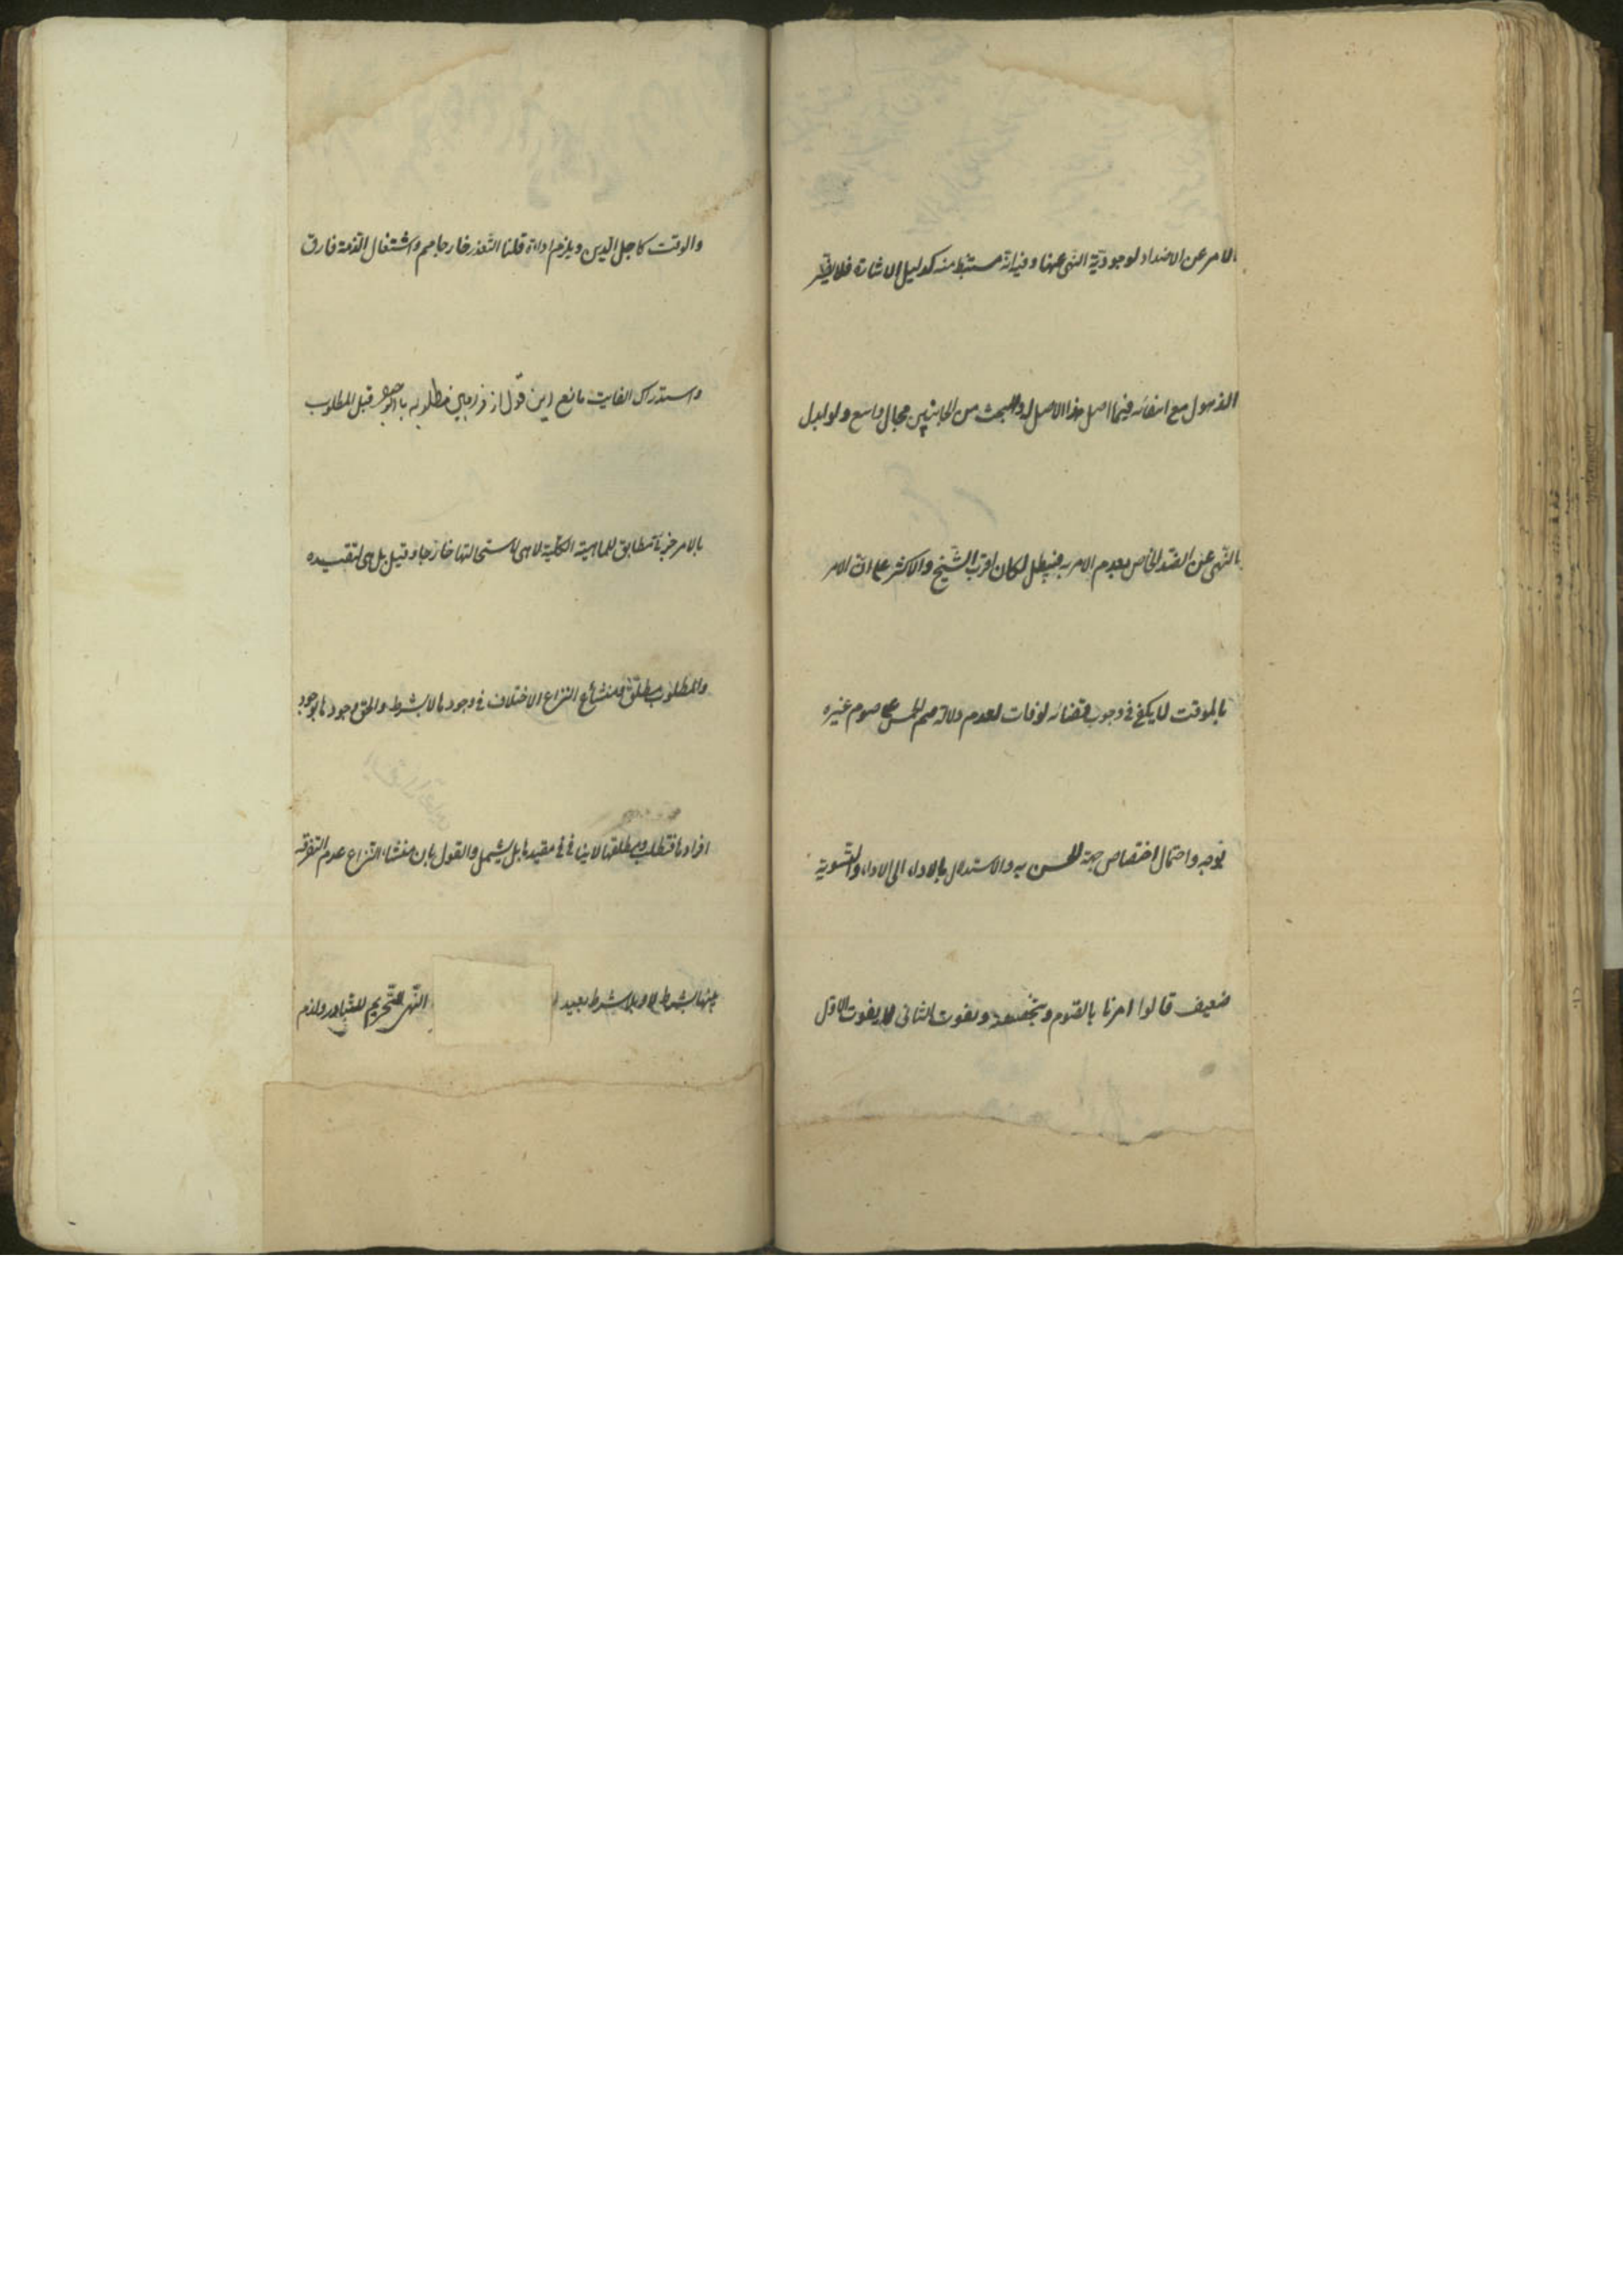 الامر عن الاضداد لوجودية النهى عنها وفيه انه مستنبط منه كدليل الاشارة فلا يضر
الذهول مع انتفائه فيما اصل هذا الاصل له وللبحث من الجانبين مجال واسع ولو ابدل
بالنهى عن الضد الخاص بعدم الامر به فيبطل لكان اقرب الشيخ والاكثر على ان الامر
بالموقت لا يكفى فى وجوب قضائه لو فات لعدم دلالة صم الخميس على صوم غيره
بوجه واحتمال اختصاص جهة الحسن به والاستدلال بالاداء الى الاداء والتسوية
ضعيف قالوا امرنا بالصوم وبتخصصه وبفوت الثانى لا يفوت الاول
والوقت كاجل الدين ويلزم اداؤه قلنا التعذر خارجا مم واشتغال الذمة فارق
واستدراك الفايت مانع
بالامر جزئ مطابق للماهية الكلية لا هى لاستحالتها خارجا وقيل بل هى لتقييده
والمطلوب مطلق ومنشأ النزاع الاختلاف فى وجودها لا بشرط والحق وجودها بوجود
افرادها فتطلب ومطلقها لا ينافى مقيدها بل يشمل والقول بان منشاء النزاع عدم التفرقة
بينها بشرط لا ولا بشرط بعيد النهى للتحريم للتبادر ولذم